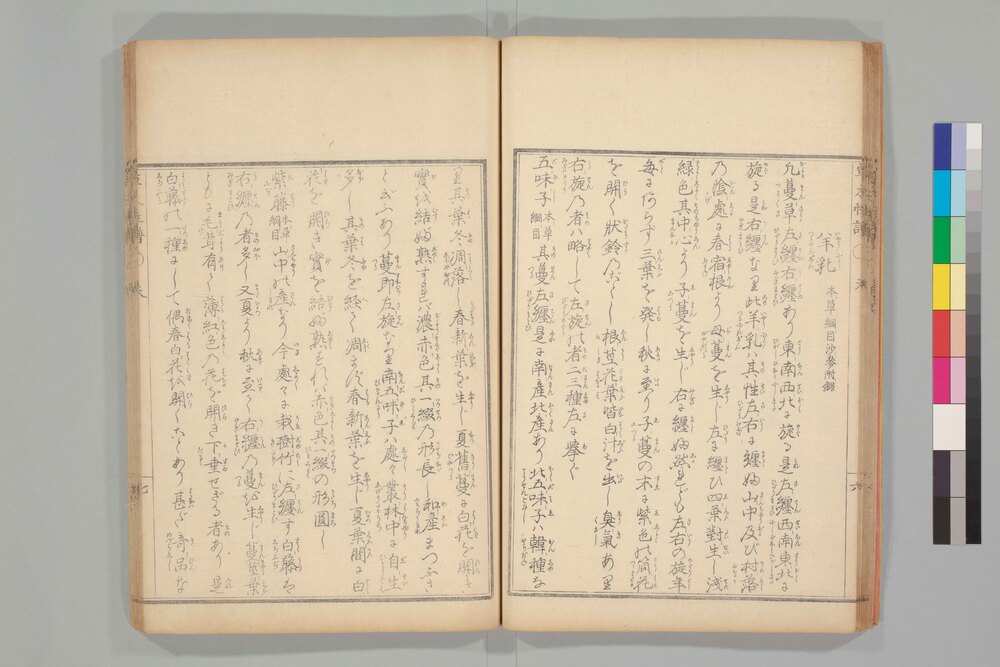 羊乳 本草綱目沙参附録
凡蔓草左纏右纏あり東南西北に旋る是左纏西南東北に
旋る是右纏なり此羊乳ハ其性左右に纏ふ山中及び村落
乃陰處に春宿根より母蔓を生し左に纏ひ四葉對生し淺
緑色其中心より子蔓を生し右に纏ふ然れども左右の旋年
毎に定らず三葉を発し秋に至り子蔓の末に紫色の筒花
を開く状鈴乃如く根莖花葉皆白汁を出し臭氣あり
右旋乃者ハ略して左旋の者二三種左に挙ぐ
五味子 本草綱目 其蔓左纏是に南産北産あり北五味子ハ韓種な
り其葉冬凋落し春新葉を生し夏舊蔓に白花を開き
實を結ぶ熟すれバ濃赤色其一綴乃形長し和産まつふさ
とぎふあり蔓即左旋なり南五味子ハ處々叢林中に自生
多し其葉冬を経て凋まず春新葉を生し夏葉間に白
花を開き實を結ぶ熟すれバ赤色其一綴の形圓し
紫藤 本草綱目 山中に産すり今處々に栽樹竹に左纏す白藤は
右纏乃者多し又夏より秋に至て右纏乃蔓を生し蔓葉
ともに毛茸有て薄紅色乃花を開き下垂せざる者あり是
白藤の一種にして偶春白花を開くことあり甚だ奇品な